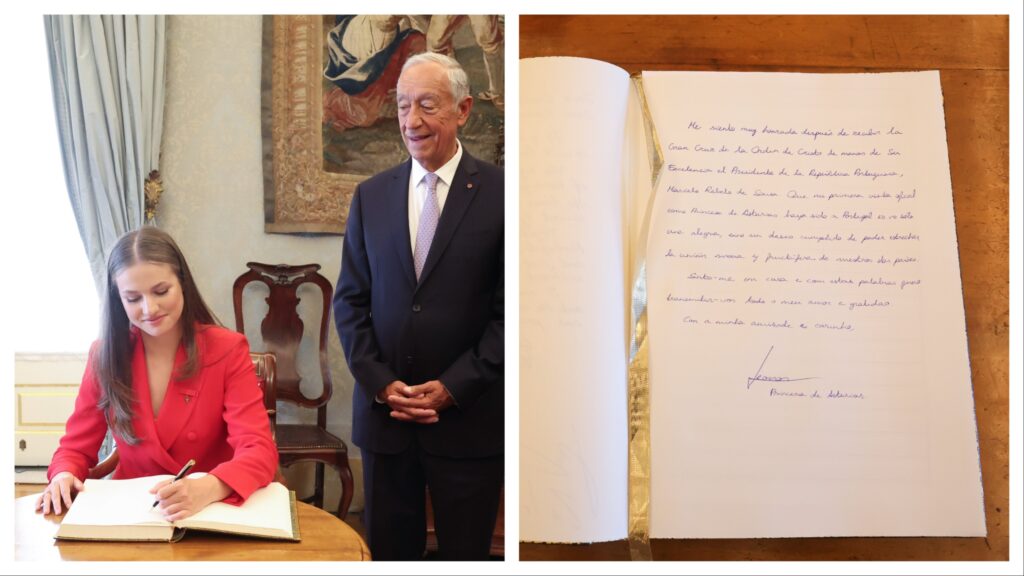 Me siento muy honrada después de recibir la
Gran Cruz de la Orden de Cristo de manos de Su
Excelencia el Presidente de la República Portuguesa,
Marcelo Rebelo de Sousa. Que mi primera visita oficial
como Princesa de Asturias haya sido a Portugal es no sólo
una alegría, sino un deseo cumplido de poder estrechar
la unión sincera y fructífera de nuestros dos países.
Sinto-me em casa e com estas palavras quero
transmitir-vos todo o meu amor e gratidão.
Con a minha amizade e carinho,
Leonor
Princesa de Asturias